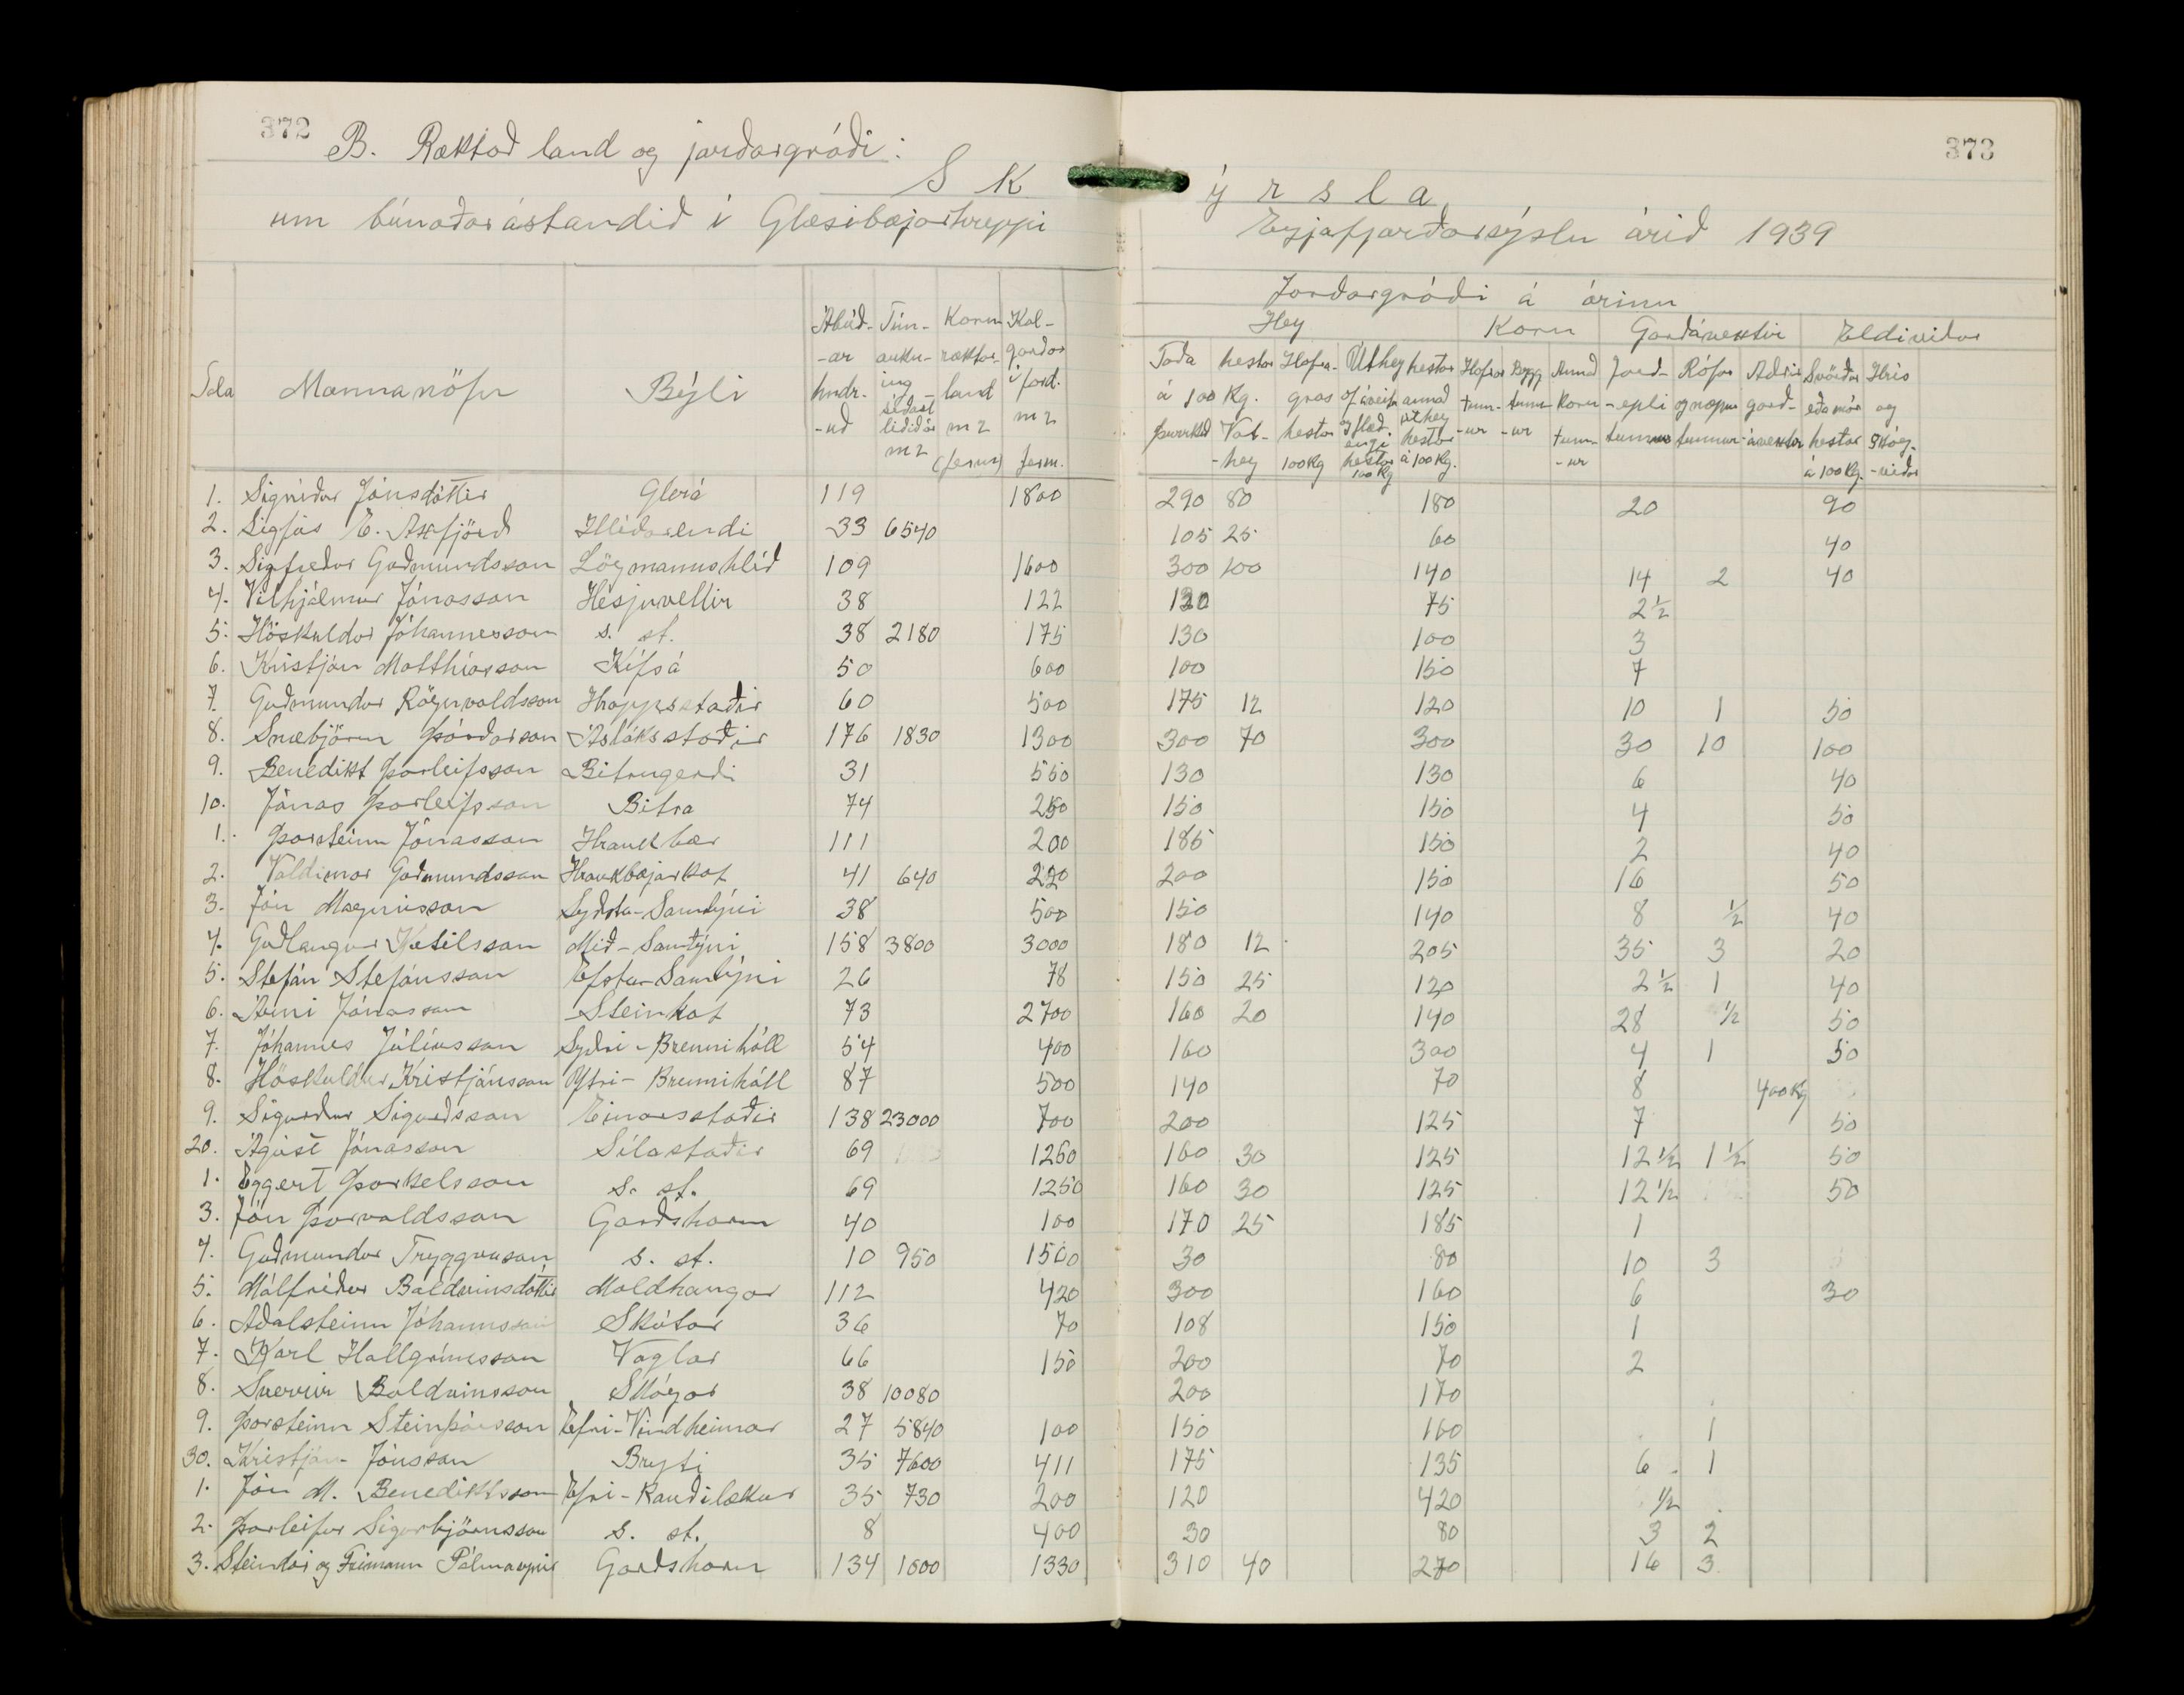 372
373
B. Ræktað land og jarðargróði:
S K ý r s l a
um búnaðarástandið í Glæsibæjarhreppi Eyjafjarðarsýslu árið 1939
Jarðargróði á árinu
Hey Korn Garðávextir Eldiviður
Tala Mannanöfn Býli Ábúð-ar hndr-uð Tún-auku-ing síðast liðið ár m2 Korn ræktar-land m2 (ferm) Kál-garðar í jarð. m2 ferm. Taða hestar á 100 Kg. þurrkað Vot-hey Hafra-gras hestar 100 Kg Úthey hestar af áveitu og flæð. engi hestar 100 Kg annað úthey hestar á 100 Kg. Hafrar tunn-ur Bygg tunn-ur Annað korn tunn-ur Jarð-epli tunnur Rófur og næpur tunnur Aðrir garð-ávextir Svörður eða mór hestar á 100 Kg. Hrís og skóg-viður
1. Sigríður Jónsdóttir Glerá 119 1800 290 80 180 20 90
2. Sigfús E. Axfjörð Hlíðarendi 33 6540 105 25 60 40
3. Sigfreður Guðmundsson Lögmannshlíð 109 1600 300 100 140 14 2 40
4. Vilhjálmur Jónasson Hesjuvellir 38 122 120 75 2½
5. Höskuldur Jóhannesson s. st. 38 2180 175 130 100 3
6. Kristján Matthíasson Kífsá 50 600 100 150 7
7. Guðmundur Rögnvaldsson Hrappsstaðir 60 500 175 12 120 10 1 50
8. Snæbjörn Þórðarson Ásláksstaðir 176 1830 1300 300 70 300 30 10 100
9. Benedikt Þorleifsson Bitrugerði 31 550 130 130 6 40
10. Jónas Þorleifsson Bitra 74 250 150 150 4 50
1. Þorsteinn Jónasson Hraukbær 111 200 185 150 2 40
2. Valdimar Guðmundsson Hraukbæjarkot 41 640 220 200 150 16 50
3. Jón Magnússon Syðsta-Samtýni 38 500 150 140 8 ½ 40
4. Guðlaugur Ketilsson Mið-Samtýni 158 3800 3000 180 12 205 35 3 20
5. Stefán Stefánsson Efsta-Samtýni 26 78 150 25 120 2½ 1 40
6. Árni Jónasson Steinkot 73 2700 160 20 140 28 ½ 50
7. Jóhannes Júlíusson Syðri-Brennihóll 54 400 160 300 4 1 50
8. Höskuldur Kristjánsson Ytri-Brennihóll 87 500 140 70 8 400 Kg
9. Sigurður Sigurðsson Einarsstaðir 138 23000 700 200 125 7 50
20. Ágúst Jónasson Sílastaðir 69 1250 160 30 125 12½ 1½ 50
1. Eggert Þorkelsson s. st. 69 1250 160 30 125 12½ 50
3. Jón Þorvaldsson Garðshorn 40 100 170 25 185 1
4. Guðmundur Tryggvason s. st. 10 950 1500 30 80 10 3
5. Málfríður Baldvinsdóttir Moldhaugar 112 420 300 160 6 30
6. Aðalsteinn Jóhannsson Skútar 36 70 108 150 1
7. Karl Hallgrímsson Vaglar 66 150 200 70 2
8. Sverrir Baldvinsson Skógar 38 10080 200 170
9. Þorsteinn Steinþórsson Efri-Vindheimar 27 5840 100 150 160 1
30. Kristján Jónsson Bryti 35 7600 411 175 135 6 1
1. Jón M. Benediktsson Efri-Rauðilækur 35 730 200 120 420 ½
2. Þorleifur Sigurbjörnsson s. st. 8 400 30 80 3 2
3. Steindór og Frímann Pálmasynir Garðshorn 134 1000 1330 310 40 270 16 3